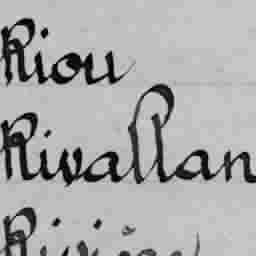 Riou
Rivallan